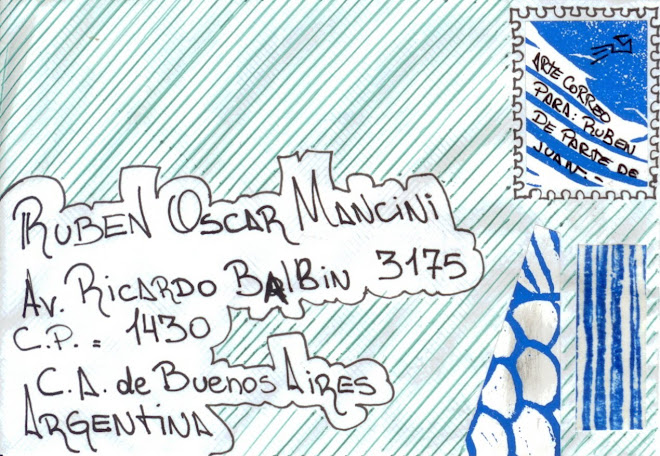 Ruben Oscar Mancini
Av. Ricardo BAlBin 3175
C.P. = 1430
C.A. de Buenos Aires
Argentina
ARTE CORREO
PARA: RUBEN
DE PARTE DE
JUAN-